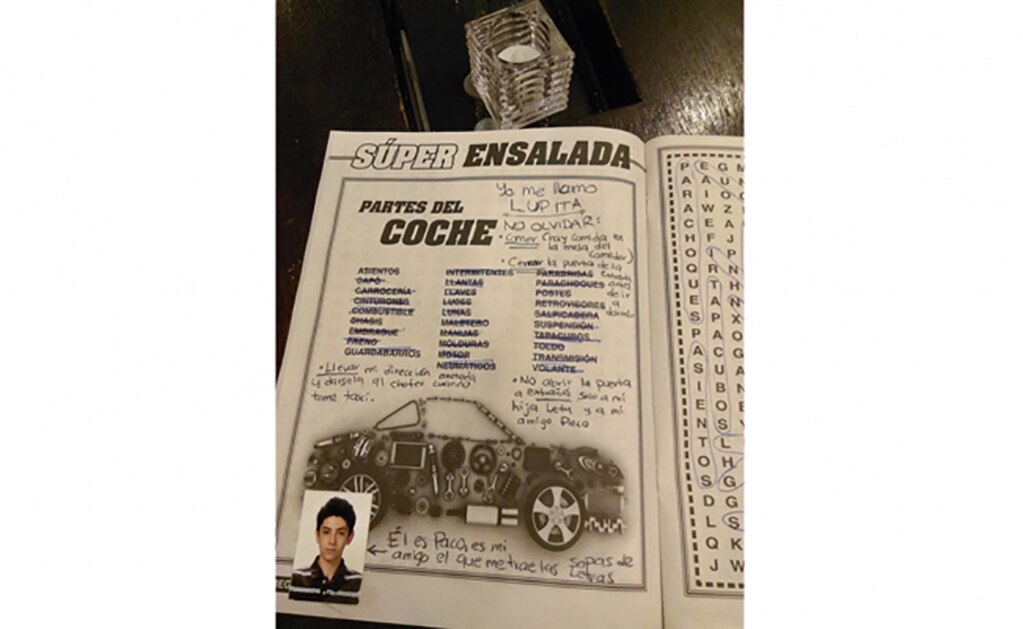 SÚPER ENSALADA
PARTES DEL
COCHE
Yo me llamo
LUPITA
NO OLVIDAR:
• Comer (hay comida en
la mesa del
comedor)
• Cerrar la puerta de la
entrada
antes
de ir
a
dormir
ASIENTOS
CAPÓ
CARROCERÍA
CINTURONES
COMBUSTIBLE
CHASIS
EMBRAGUE
FRENO
GUARDABARROS
INTERMITENTES
LLANTAS
LLAVES
LUCES
LUNAS
MALETERO
MANIJAS
MOLDURAS
MOTOR
NEUMÁTICOS
PARABRISAS
PARACHOQUES
POSTES
RETROVISORES
SALPICADERA
SUSPENSIÓN
TAPACUBOS
TOLDO
TRANSMISIÓN
VOLANTE
• Llevar mi dirección anotada
y darsela al chofer cuando
tome taxi.
• No abrir la puerta
a extraños solo a mi
hija Lety y a mi
amigo Paco
Él es Paco, es mi
amigo el que me trae las sopas de
letras
P E G M
A A U
R I O
A W Z
C E A
H F J
O I P
Q R N
U T H
E A N
S P X
P A O
A C G
S U A
I B N
E O E
N S Y
T L
O H
S G
D G
L S
Q K
J W